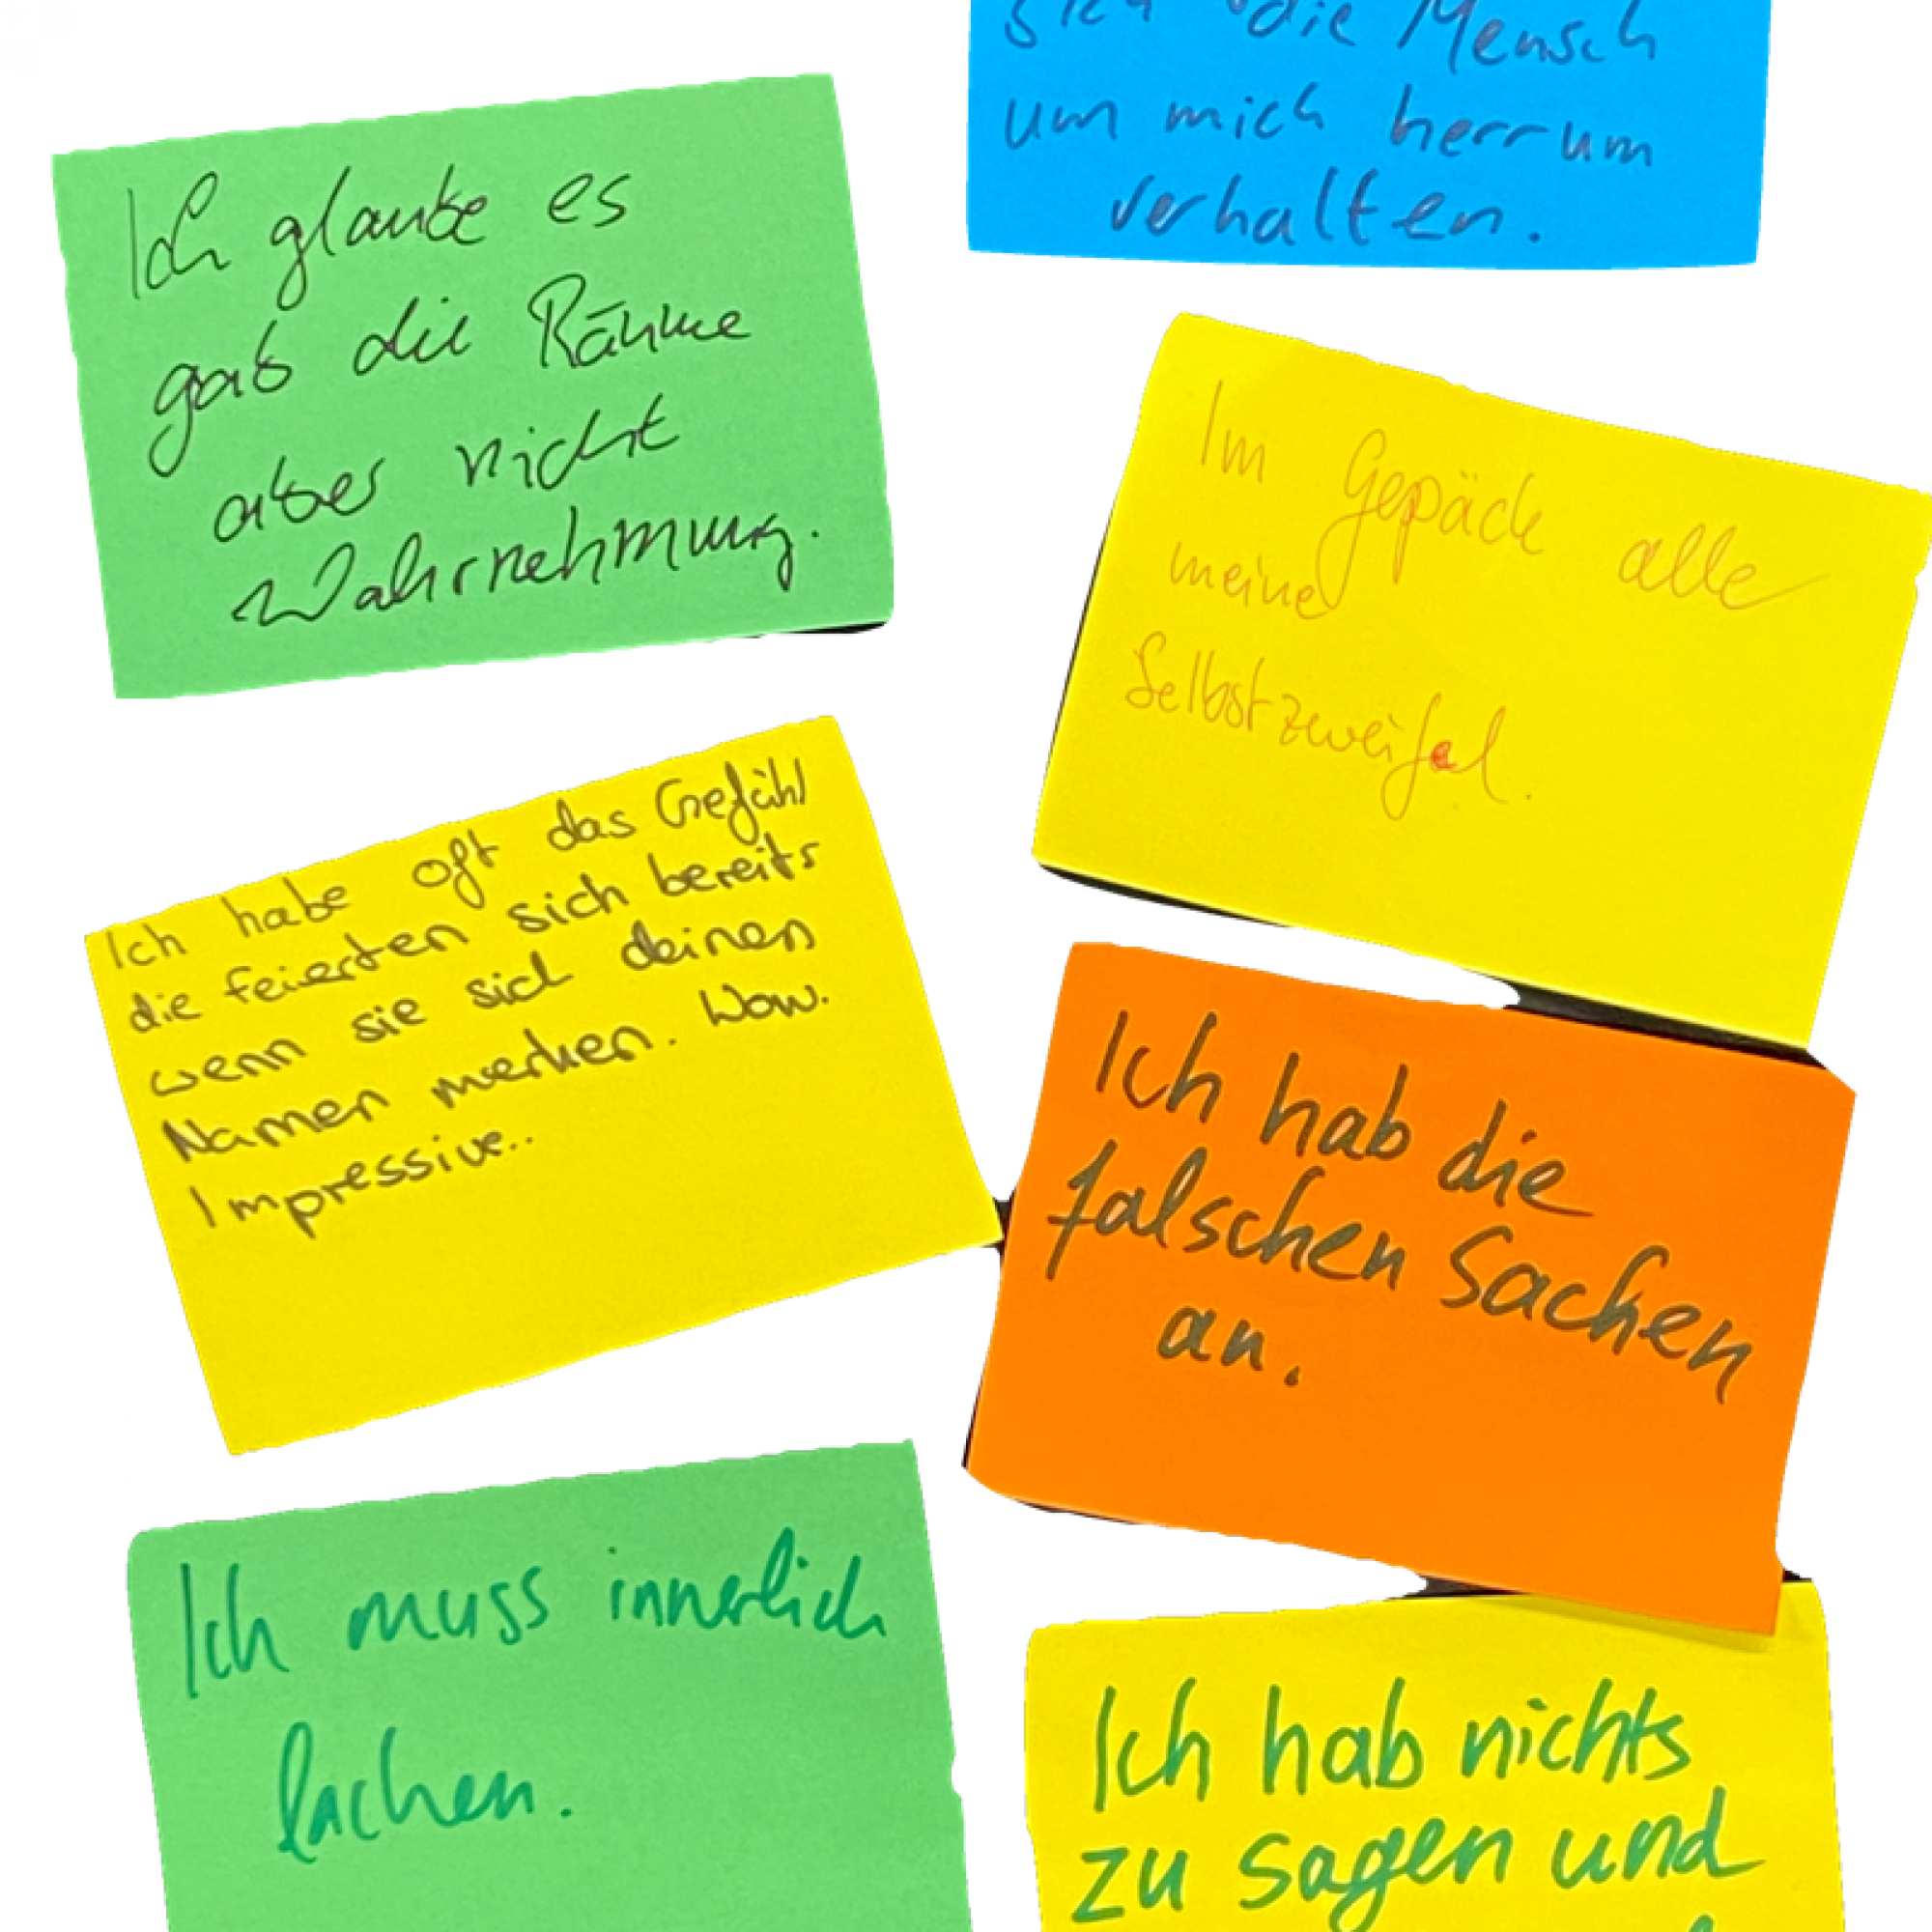 Ich glaube es
gab die Räume
aber nicht
Wahrnehmung.
sich die Mensch
um mich herrum
verhalten.
Im Gepäck alle
meine
Selbstzweifel.
Ich habe oft das Gefühl
die feierten sich bereits
wenn sie sich deinen
Namen merken. Wow.
Impressive..
Ich hab die
falschen Sachen
an.
Ich muss innerlich
lachen.
Ich hab nichts
zu sagen und